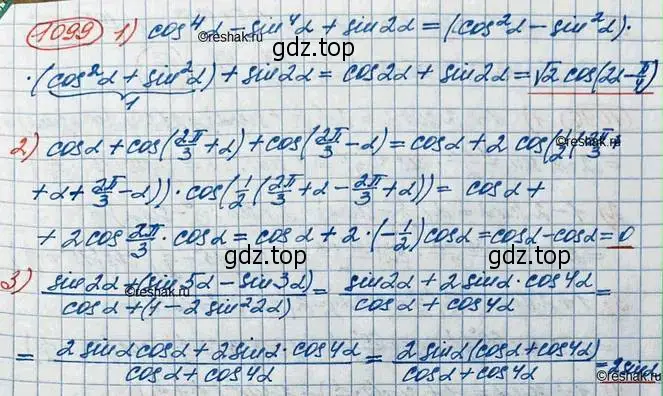 1099 1) cos⁴α - sin⁴α + sin2α = (cos²α - sin²α)·
gdz.top
·(cos²α + sin²α) + sin2α = cos2α + sin2α = √2 cos(2α - π/4)
1
©reshak.ru
2) cosα + cos(2π/3 + α) + cos(2π/3 - α) = cosα + 2 cos(1/2(2π/3 +
+ α + 2π/3 - α))·cos(1/2(2π/3 + α - 2π/3 + α)) = cosα +
+ 2cos 2π/3 · cosα = cosα + 2·(-1/2)cosα = cosα - cosα = 0
gdz.top
3) (sin2α + (sin5α - sin3α))/(cosα + (1 - 2sin²2α)) = (sin2α + 2sinα·cos4α)/(cosα + cos4α) =
©reshak.ru
= (2sinαcosα + 2sinα·cos4α)/(cosα + cos4α) = (2sinα(cosα + cos4α))/(cosα + cos4α) = 2sinα
gdz.top
©reshak.ru